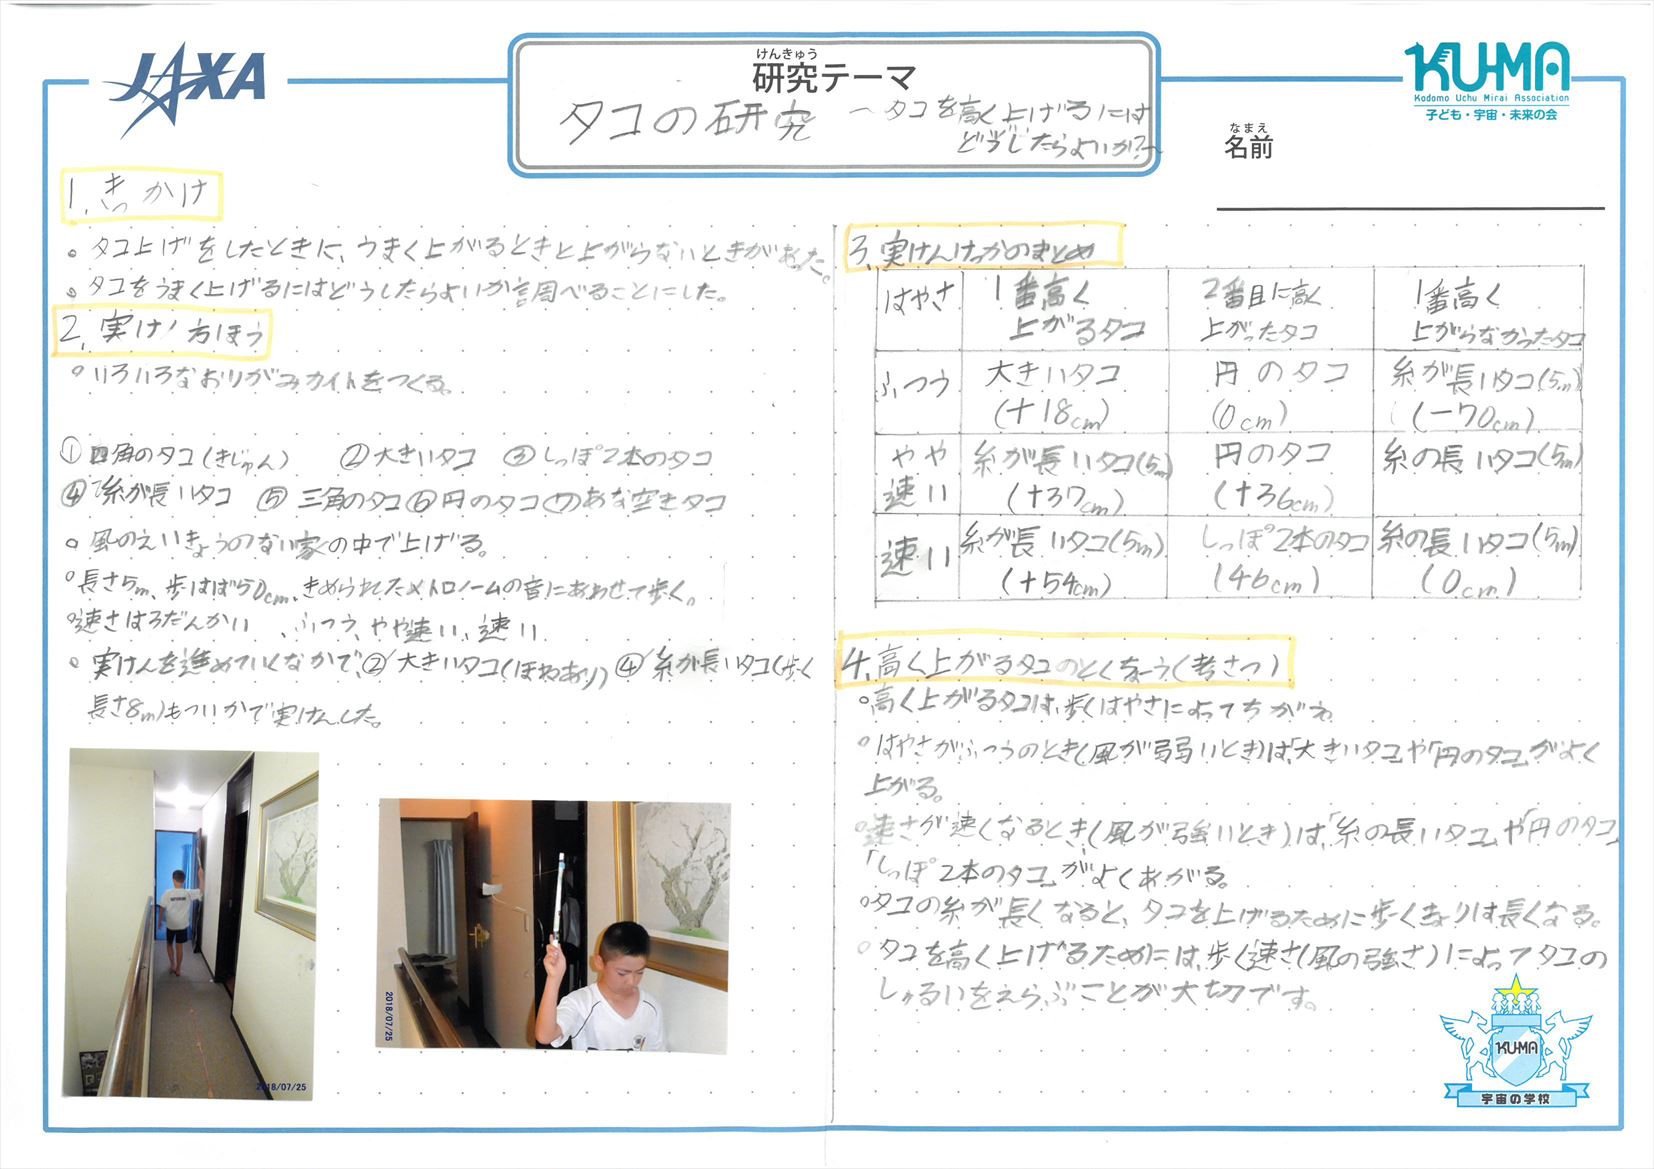 JAXA
けんきゅう
研究テーマ
タコの研究 ～タコを高く上げるには
どうしたらよいか？～
KU-MA
Kodomo Uchu Mirai Association
子ども・宇宙・未来の会
なまえ
名前
1. きっかけ
・タコ上げをしたときに、うまく上がるときと上がらないときがあった。
・タコをうまく上げるにはどうしたらよいか調べることにした。
2. 実けん方ほう
・いろいろなおりがみカイトをつくる。
①四角のタコ(きじゅん) ②大きいタコ ③しっぽ2本のタコ
④糸が長いタコ ⑤三角のタコ ⑥円のタコ ⑦あな空きタコ
・風のえいきょうのない家の中で上げる。
・長さ5m、歩はば50cm、きめられたメトロノームの音にあわせて歩く。
・速さは3だんかい、ふつう、やや速い、速い
・実けんを進めていくなかで、②'大きいタコ(ほねあり)④'糸が長いタコ(歩く
長さ8m)もついかで実けんした。
2018/07/25
2018/07/25
3. 実けんけっかのまとめ
はやさ 1番高く上がるタコ 2番目に高く上がったタコ 1番高く上がらなかったタコ
ふつう 大きいタコ(+18cm) 円のタコ(0cm) 糸が長いタコ(5m)(-70cm)
やや速い 糸が長いタコ(5m)(+37cm) 円のタコ(+36cm) 糸の長いタコ(5m)
速い 糸が長いタコ(5m)(+54cm) しっぽ2本のタコ(46cm) 糸の長いタコ(5m)(0cm)
4. 高く上がるタコのとくちょう(考さつ)
・高く上がるタコは、歩くはやさによってちがう
・はやさがふつうのとき(風が弱いとき)は、「大きいタコ」や「円のタコ」がよく
上がる。
・速さが速くなるとき(風が強いとき)は、「糸の長いタコ」や「円のタコ」
「しっぽ2本のタコ」がよくあがる。
・タコの糸が長くなると、タコを上げるために歩くきょりは長くなる。
・タコを高く上げるためには、歩く速さ(風の強さ)によってタコの
しゅるいをえらぶことが大切です。
KU-MA
宇宙の学校